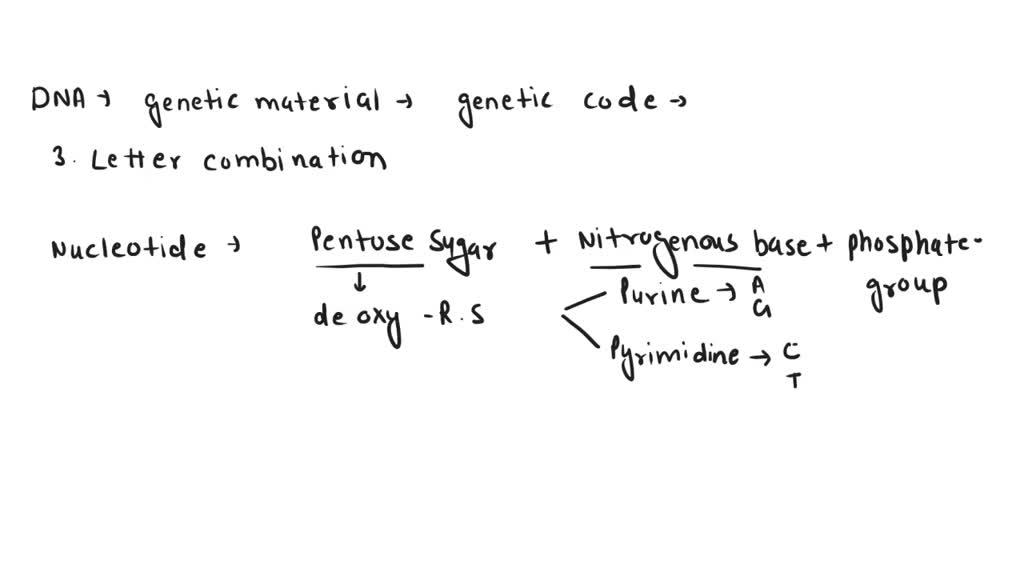 DNA → genetic material → genetic code →
3. Letter combination
Nucleotide → Pentose sygar + Nitrogenous base + phosphate-
group
↓
Purine → A
G
de oxy -R.S
Pyrimidine → C
T